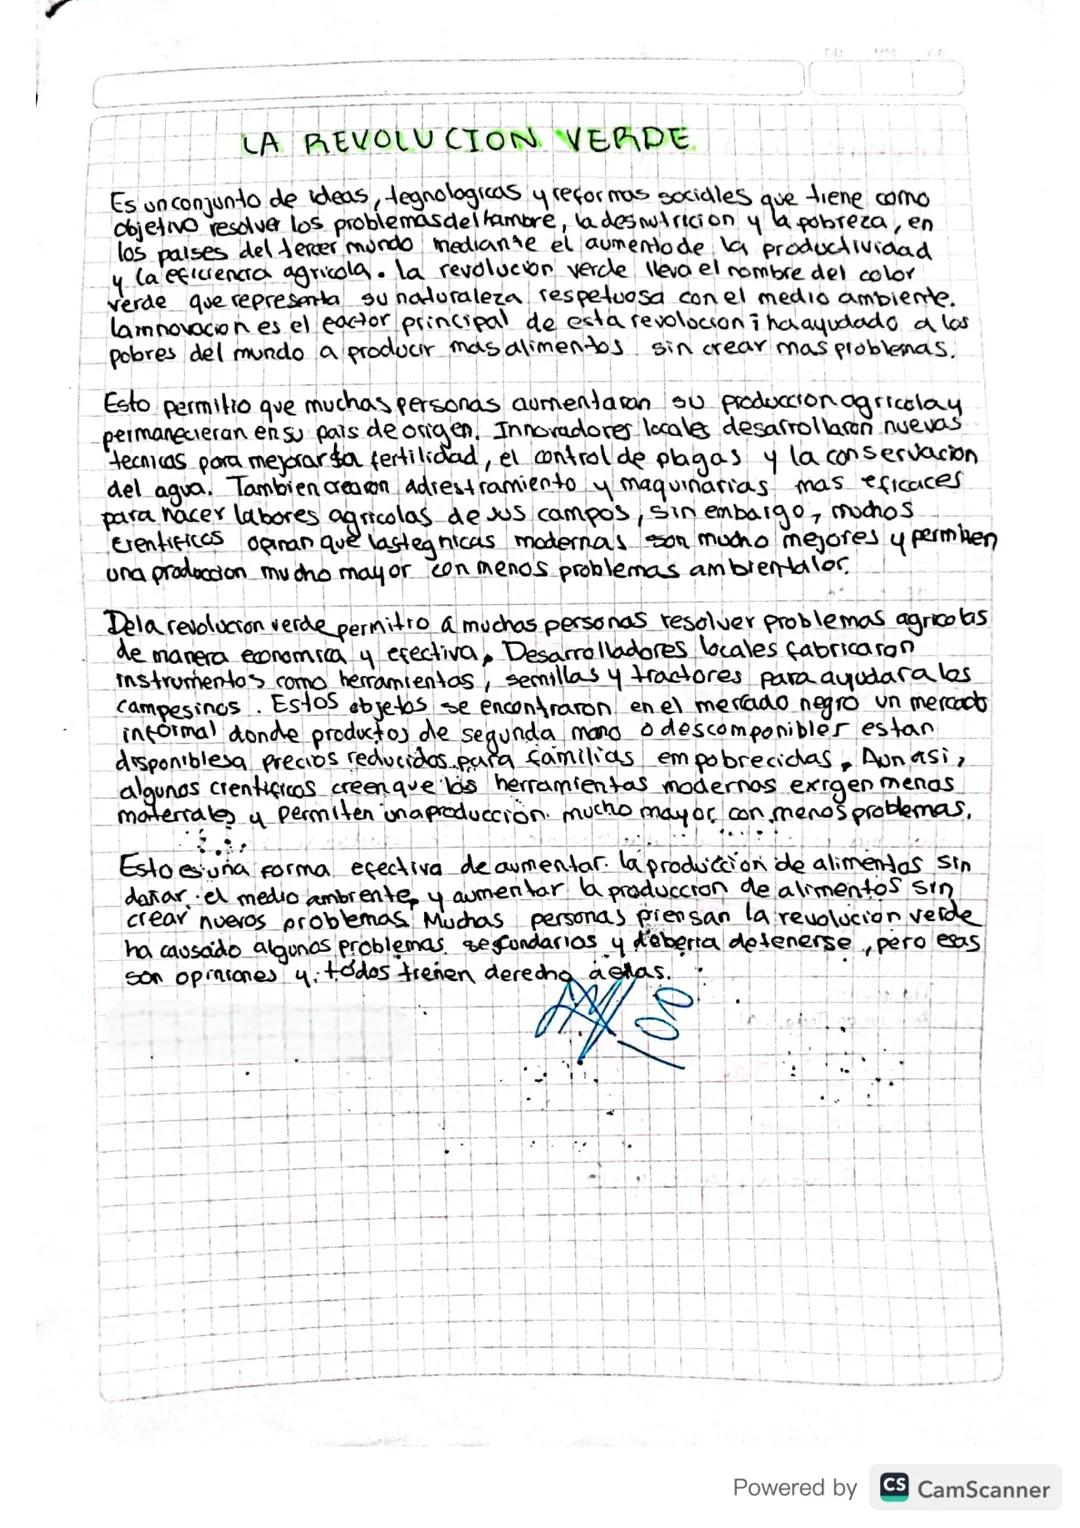 LA REVOLUCION VERDE
Es un conjunto de ideas, tegnologicas y reformas socialles que tiene como
objetivo resolver los problemas del hambre, la desnutricion y la pobreza, en
los paises del tercer mundo mediante el aumento de la productividad
y la eficiencia agricola. la revolucion verde lleva el nombre del color
verde que representa su naturaleza respetuosa con el medio ambiente.
la innovacion es el factor principal de esta revolocion i ha ayudado a los
pobres del mundo a producir mas alimentos sin crear mas problemas.
Esto permitio que muchas personas aumentaran su produccion agricola y
permanecieran en su pais de origen. Innovadores locales desarrollaron nuevas
tecnicas para mejorar la fertilidad, el control de plagas y la conservacion
del agua. Tambien crearon adrestramiento y maquinarias mas eficaces
para hacer labores agricolas de sus campos, sin embargo, muchos
cientificos opinan que las tegnicas modernas son mucho mejores y permiten
una produccion mucho mayor con menos problemas ambientalor.
De la revolucion verde permitio a muchas personas resolver problemas agricolas
de manera economica y efectiva, Desarrolladores locales fabricaron
instrumentos como herramientas, semillas y tractores para ayudar a los
campesinos. Estos objetos se encontraron en el mercado negro un mercado
informal donde productos de segunda mano o descomponibles estan
disponibles a precios reducidos para familias empobrecidas, Aun asi,
algunos cientificos creen que las herramientas modernas exigen menos
materiales y permiten una produccion mucho mayor con menos problemas.
Esto es una forma efectiva de aumentar la produccion de alimentos sin
dañar el medio ambiente, y aumentar la produccion de alimentos sin
crear nuevos problemas. Muchas personas piensan la revolucion verde
ha causado algunos problemas secundarios y deberia detenerse, pero esas
son opiniones y todos tienen derecho a ellas.
100
Powered by CS CamScanner